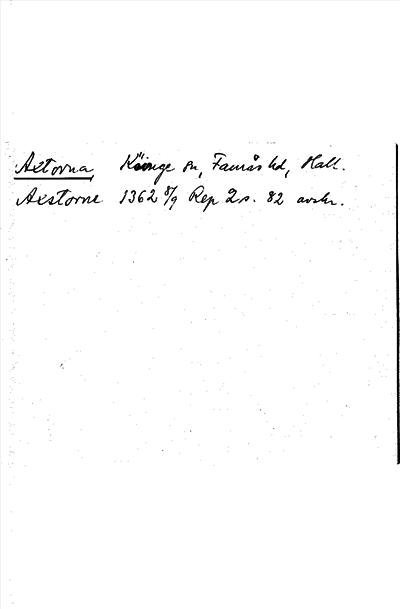 Axtorna, Köinge sn, Faurås hd, Hall.
Axstorne 1362 8/9 Rep 2 s. 82 avskr.